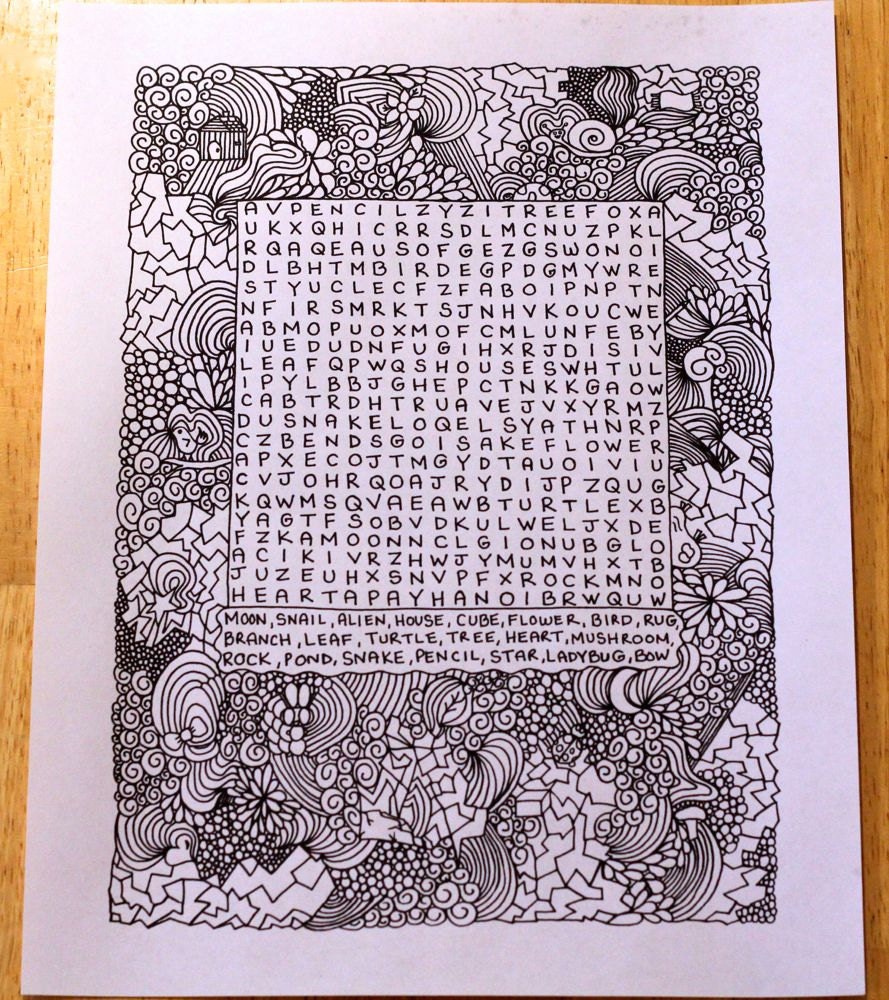 AVPENCILZYZITREEFOXA
UKXQHICRRSDLMCNUZPKL
RQAQEAUSOFGEZGSWONOI
DLBHTMBIRDEGPDGMYWRE
STYUCLECFZFABOIPNPTN
NFIRSMRKTSJNHVKOUCWE
ABMOPUOXMOFCMLUNFEBY
IUEDUDNFUGIHXRJDISIV
LEAFQPWQSHOUSESWHTUL
IPYLBBJGHEPCTNKKGAOW
CABTRDHTRUAVEJVXYRMZ
DUSNAKELOQELSYATHNRP
CZBENDSGOISAKEFLOWER
APXECOJTMGYDTAUOIVIU
CVJOHRQOAJRYDIJPZQUG
KQWMSQVAEAWBTURTLEXB
YAGTFSOBVDKULWELJXDE
FZKAMOONNCLGIONUBGLO
ACIKIVRZHWJYMUMVHXTB
JUZEUHXSNVPFXROCKMNO
HEARTAPAYHANOIBRWQUW
MOON, SNAIL, ALIEN, HOUSE, CUBE, FLOWER, BIRD, RUG,
BRANCH, LEAF, TURTLE, TREE, HEART, MUSHROOM,
ROCK, POND, SNAKE, PENCIL, STAR, LADYBUG, BOW